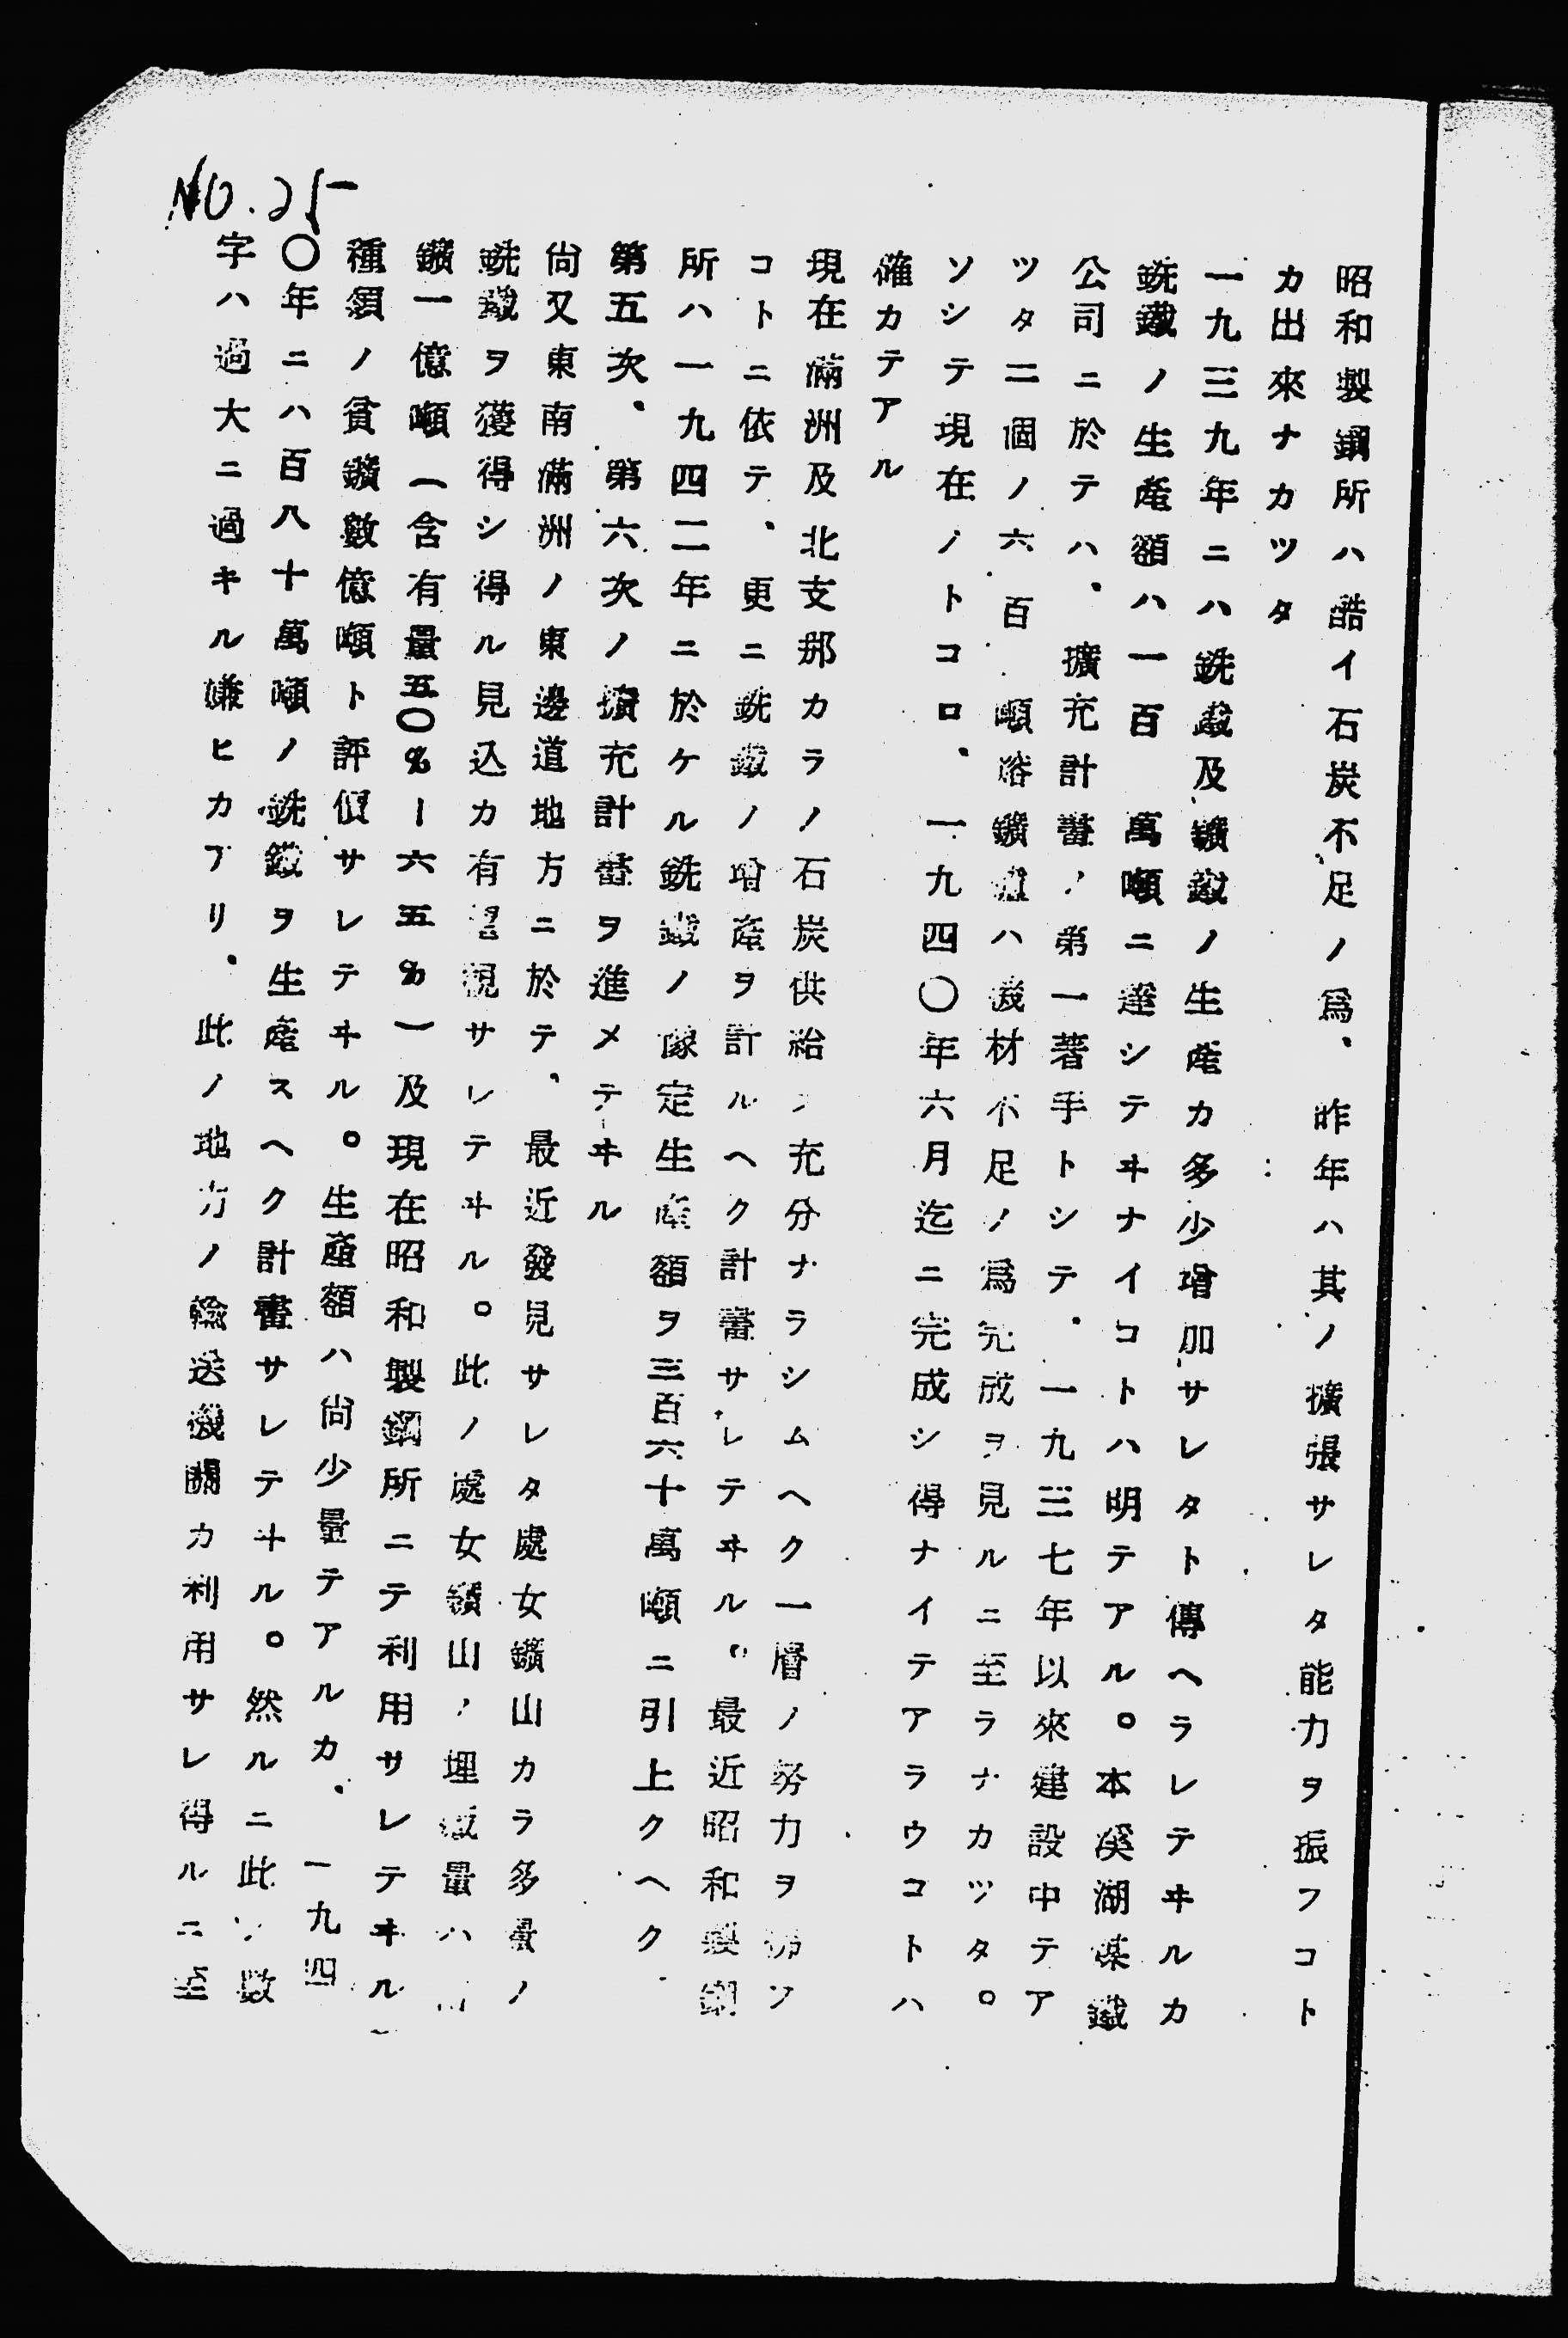 NO. 25
昭和製鋼所ハ酷イ石炭不足ノ爲、昨年ハ其ノ擴張サレタ能力ヲ振フコト
カ出來ナカツタ
一九三九年ニハ銑鐵及鑛鐵ノ生産カ多少增加サレタト傳ヘラレテヰルカ
銑鐵ノ生産額ハ一百 萬噸ニ達シテヰナイコトハ明テアル。本溪湖煤鐵
公司ニ於テハ、擴充計畫ノ第一著手トシテ、一九三七年以來建設中テア
ツタ二個ノ六百噸熔鑛爐ハ機材不足ノ爲完成ヲ見ルニ至ラナカツタ。
ソシテ現在ノトコロ、一九四〇年六月迄ニ完成シ得ナイテアラウコトハ
確カテアル
現在滿洲及北支那カラノ石炭供給ヲ充分ナラシムヘク一層ノ努力ヲ拂フ
コトニ依テ、更ニ銑鐵ノ增産ヲ計ルヘク計畫サレテヰル。最近昭和製鋼
所ハ一九四二年ニ於ケル銑鐵ノ豫定生産額ヲ三百六十萬噸ニ引上クヘク
第五次、第六次ノ擴充計畫ヲ進メテヰル
尚又東南滿洲ノ東邊道地方ニ於テ、最近發見サレタ處女鑛山カラ多量ノ
銑鐵ヲ獲得シ得ル見込カ有望視サレテヰル。此ノ處女鑛山ノ埋藏量ハ
鑛一億噸（含有量五〇%ー六五%）及現在昭和製鋼所ニテ利用サレテヰル
種類ノ貧鑛數億噸ト評價サレテヰル。生産額ハ尚少量テアルカ、一九四
〇年ニハ百八十萬噸ノ銑鐵ヲ生産スヘク計畫サレテヰル。然ルニ此ノ數
字ハ過大ニ過キル嫌ヒカアリ、此ノ地方ノ輸送機關カ利用サレ得ルニ至